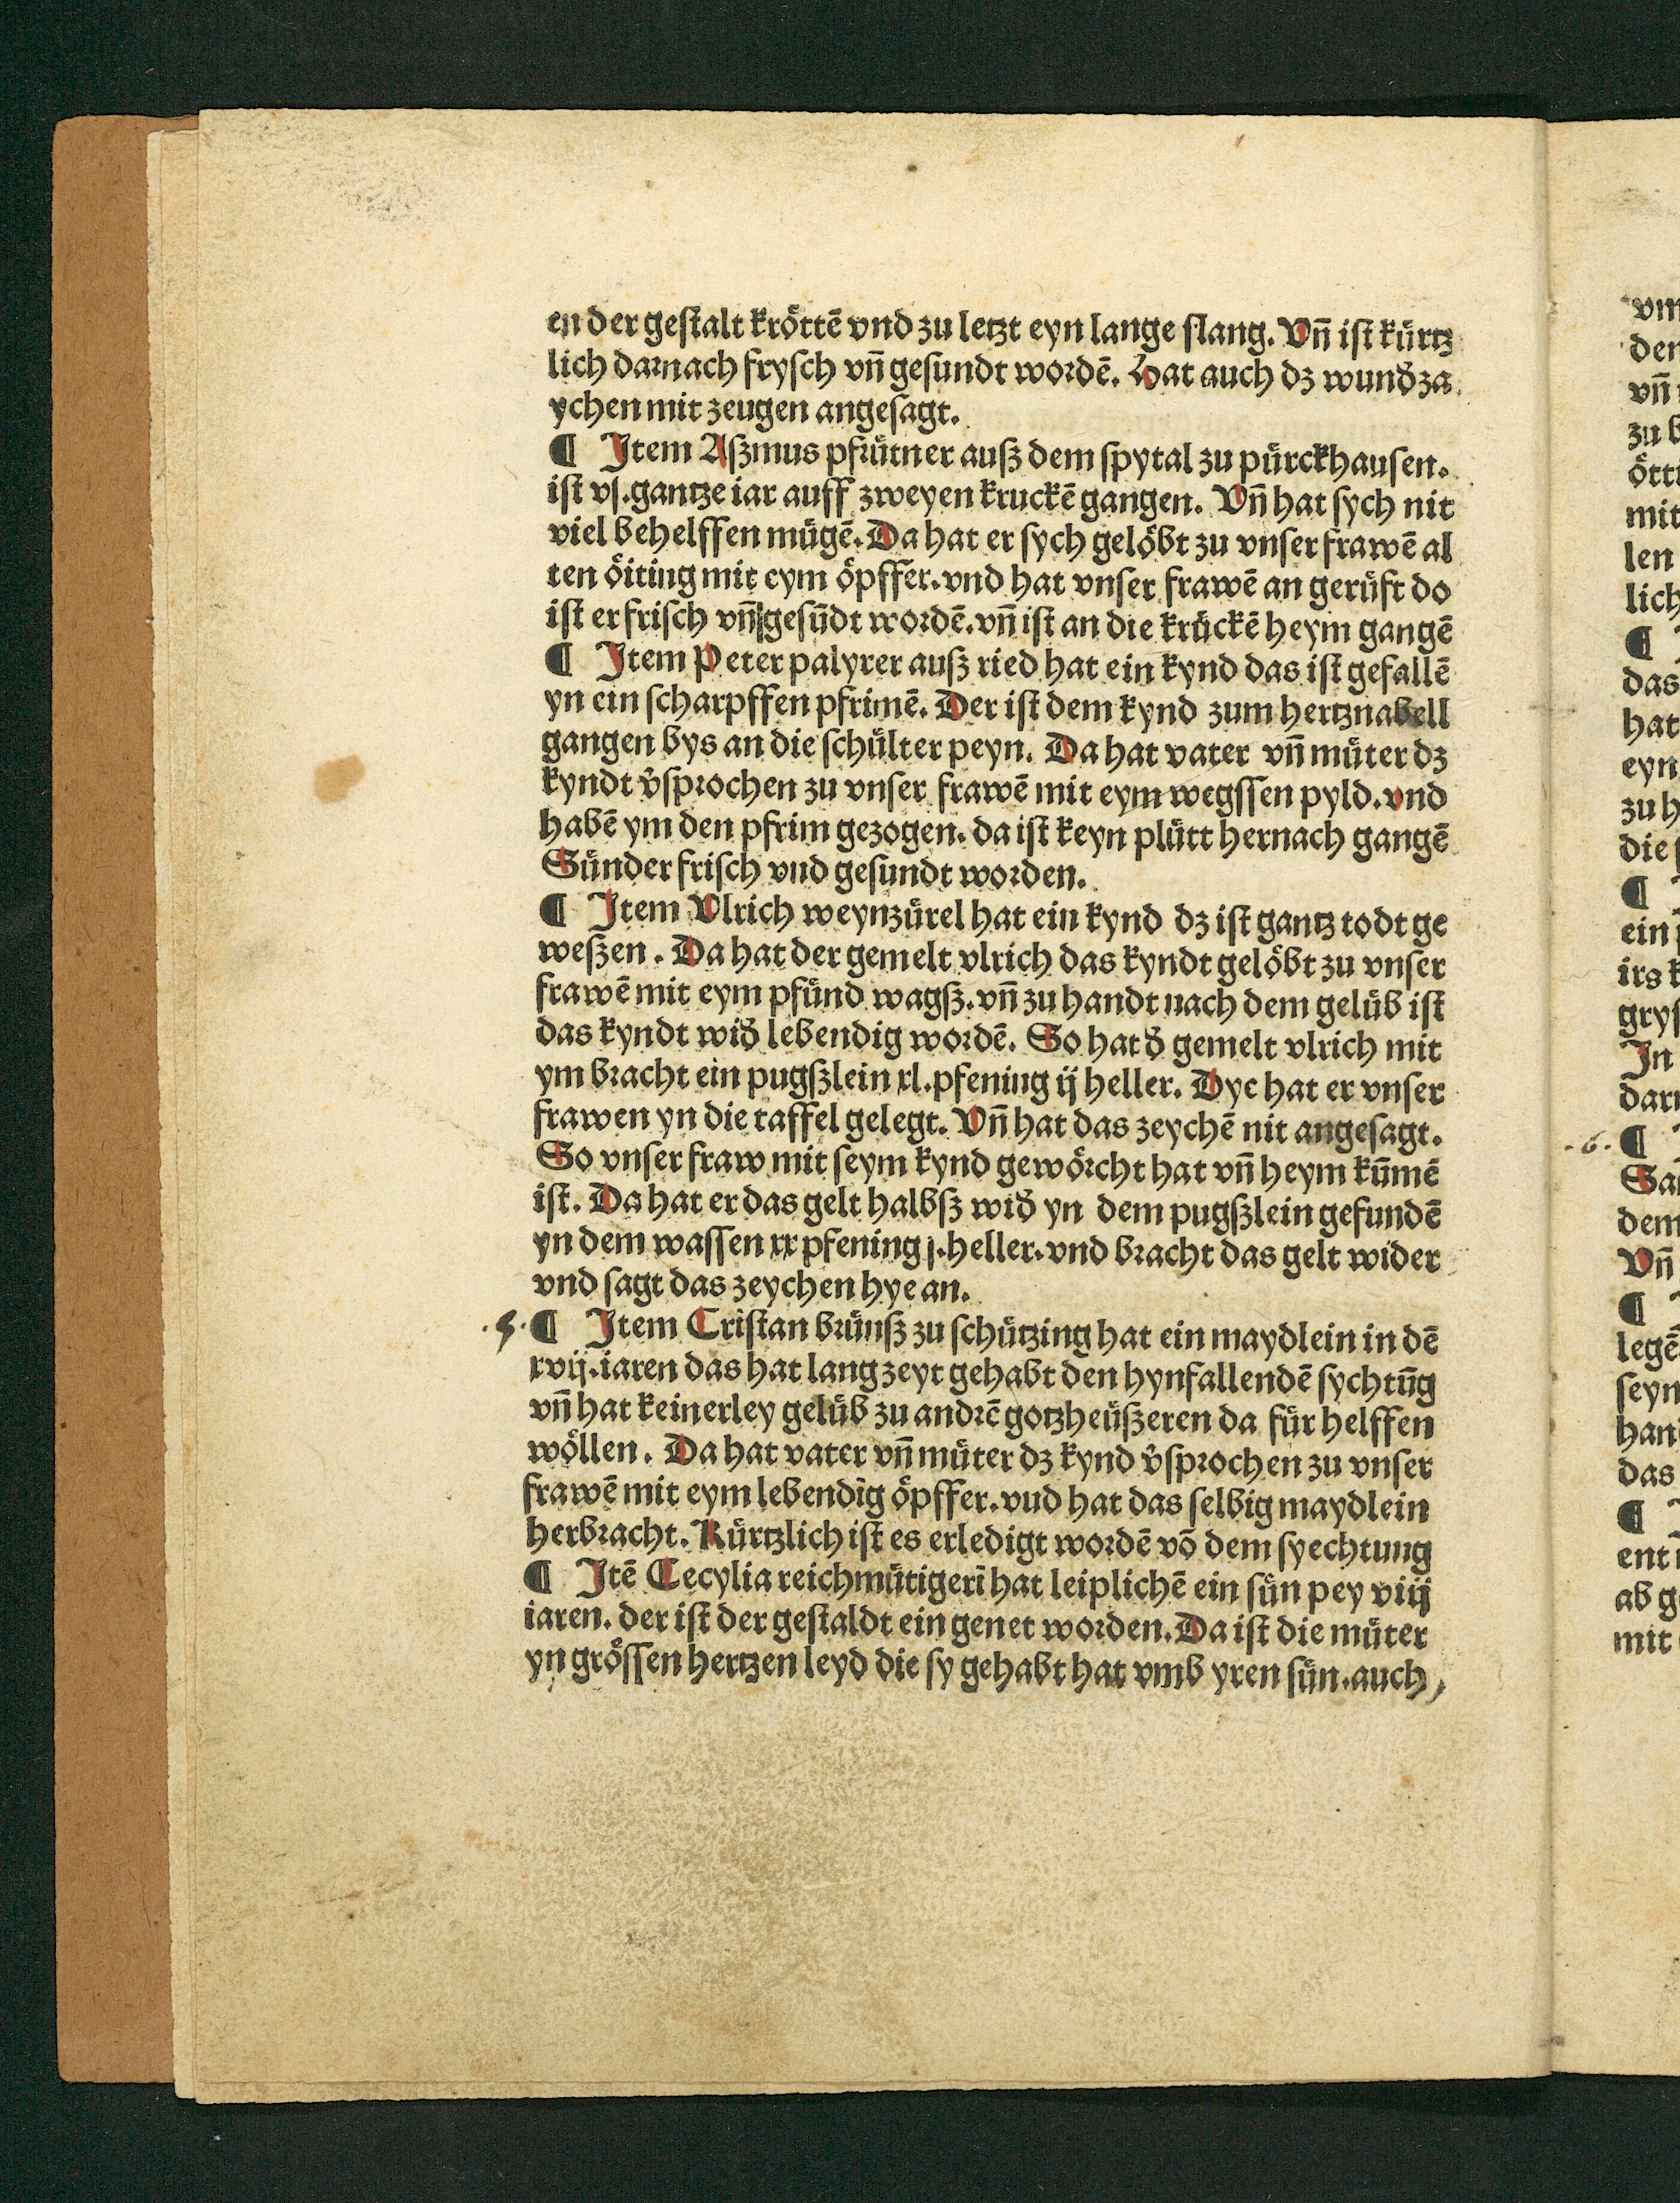 en der geſtalt kröttē vnd zu letzt eyn lange ſlang. Vn̄ iſt kürtz
lich darnach fryſch vn̄ geſundt wordē. Hat auch dz wund̄ za
ychen mit zeugen angeſagt.
¶ Item Aſzmus pfrütner auſz dem ſpytal zu pürckhauſen.
iſt vj. gantze iar auff zweyen kruckē gangen. Vn̄ hat ſych nit
viel behelffen mügē. Da hat er ſych gelöbt zu vnſer frawē al
ten öiting mit eym öpffer. vnd hat vnſer frawē an gerüft do
iſt er friſch vn̄ geſūdt wordē. vn̄ iſt an die krückē heym gangē
¶ Item Peter palyrer auſz ried hat ein kynd das iſt gefallē
yn ein ſcharpffen pfrimē. Der iſt dem kynd zum hertznabell
gangen bys an die ſchülter peyn. Da hat vater vn̄ müter dz
kyndt v̄ſprochen zu vnſer frawē mit eym wegſſen pyld. vnd
habē ym den pfrim gezogen. da iſt keyn plütt hernach gangē
Sünder friſch vnd geſundt worden.
¶ Item Vlrich weynzürel hat ein kynd dz iſt gantz todt ge
weſzen. Da hat der gemelt vlrich das kyndt gelöbt zu vnſer
frawē mit eym pfünd wagſz. vn̄ zu handt nach dem gelüb iſt
das kyndt wid̄ lebendig wordē. So hat d̄ gemelt vlrich mit
ym bracht ein pugſzlein xl. pfening ij heller. Dye hat er vnſer
frawen yn die taffel gelegt. Vn̄ hat das zeychē nit angeſagt.
So vnſer fraw mit ſeym kynd gewörcht hat vn̄ heym kūmē
iſt. Da hat er das gelt halbſz wid̄ yn dem pugſzlein gefundē
yn dem waſſen xx pfening j. heller. vnd bracht das gelt wider
vnd ſagt das zeychen hye an.
.5. ¶ Item Criſtan brünſz zu ſchützing hat ein maydlein in dē
xvij. iaren das hat lang zeyt gehabt den hynfallendē ſychtūg
vn̄ hat keinerley gelüb zu andrē gotzheüſzeren da für helffen
wöllen. Da hat vater vn̄ müter dz kynd v̄ſprochen zu vnſer
frawē mit eym lebendig öpffer. vud hat das ſelbig maydlein
herbracht. Kürtzlich iſt es erledigt wordē vō dem ſyechtung
¶ Itē Cecylia reichmütigerī hat leiplichē ein ſün pey viij
iaren. der iſt der geſtaldt ein genet worden. Da iſt die müter
yn gröſſen hertzen leyd die ſy gehabt hat vmb yren ſün. auch,
vm
den
vn̄
zu b
ött
mit
len
lich
¶
das
hat
eyn
zu h
die
¶
ein
irs k
gryſ
In
dar
.6. ¶
San
dem
Vn̄
¶
legē
ſeyn
han
das
¶
ent
ab g
mit